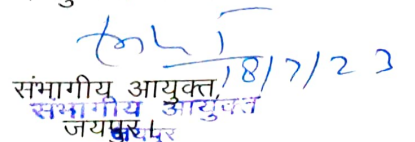 18/7/23
संभागीय आयुक्त,
संभागीय आयुक्त
जयपुर।
जयपुर